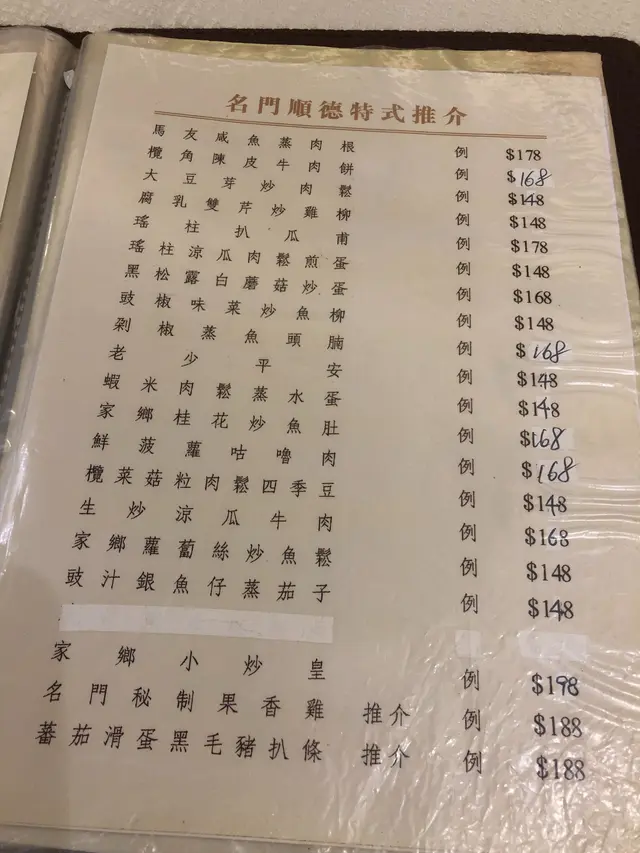 名門順德特式推介
馬友咸魚蒸肉根 例 $178
欖角陳皮牛肉餅 例 $168
大豆芽炒肉鬆 例 $148
腐乳雙芹炒雞柳 例 $148
瑤柱扒瓜甫 例 $178
瑤柱涼瓜肉鬆煎蛋 例 $148
黑松露白蘑菇炒蛋 例 $168
豉椒味菜炒魚柳 例 $148
剁椒蒸魚頭腩 例 $168
老少平安 例 $148
蝦米肉鬆蒸水蛋 例 $148
家鄉桂花炒魚肚 例 $168
鮮菠蘿咕嚕肉 例 $168
欖菜菇粒肉鬆四季豆 例 $148
生炒涼瓜牛肉 例 $168
家鄉蘿蔔絲炒魚鬆 例 $148
豉汁銀魚仔蒸茄子 例 $148
家鄉小炒皇 例 $198
名門秘制果香雞 推介 例 $188
蕃茄滑蛋黑毛豬扒條 推介 例 $188